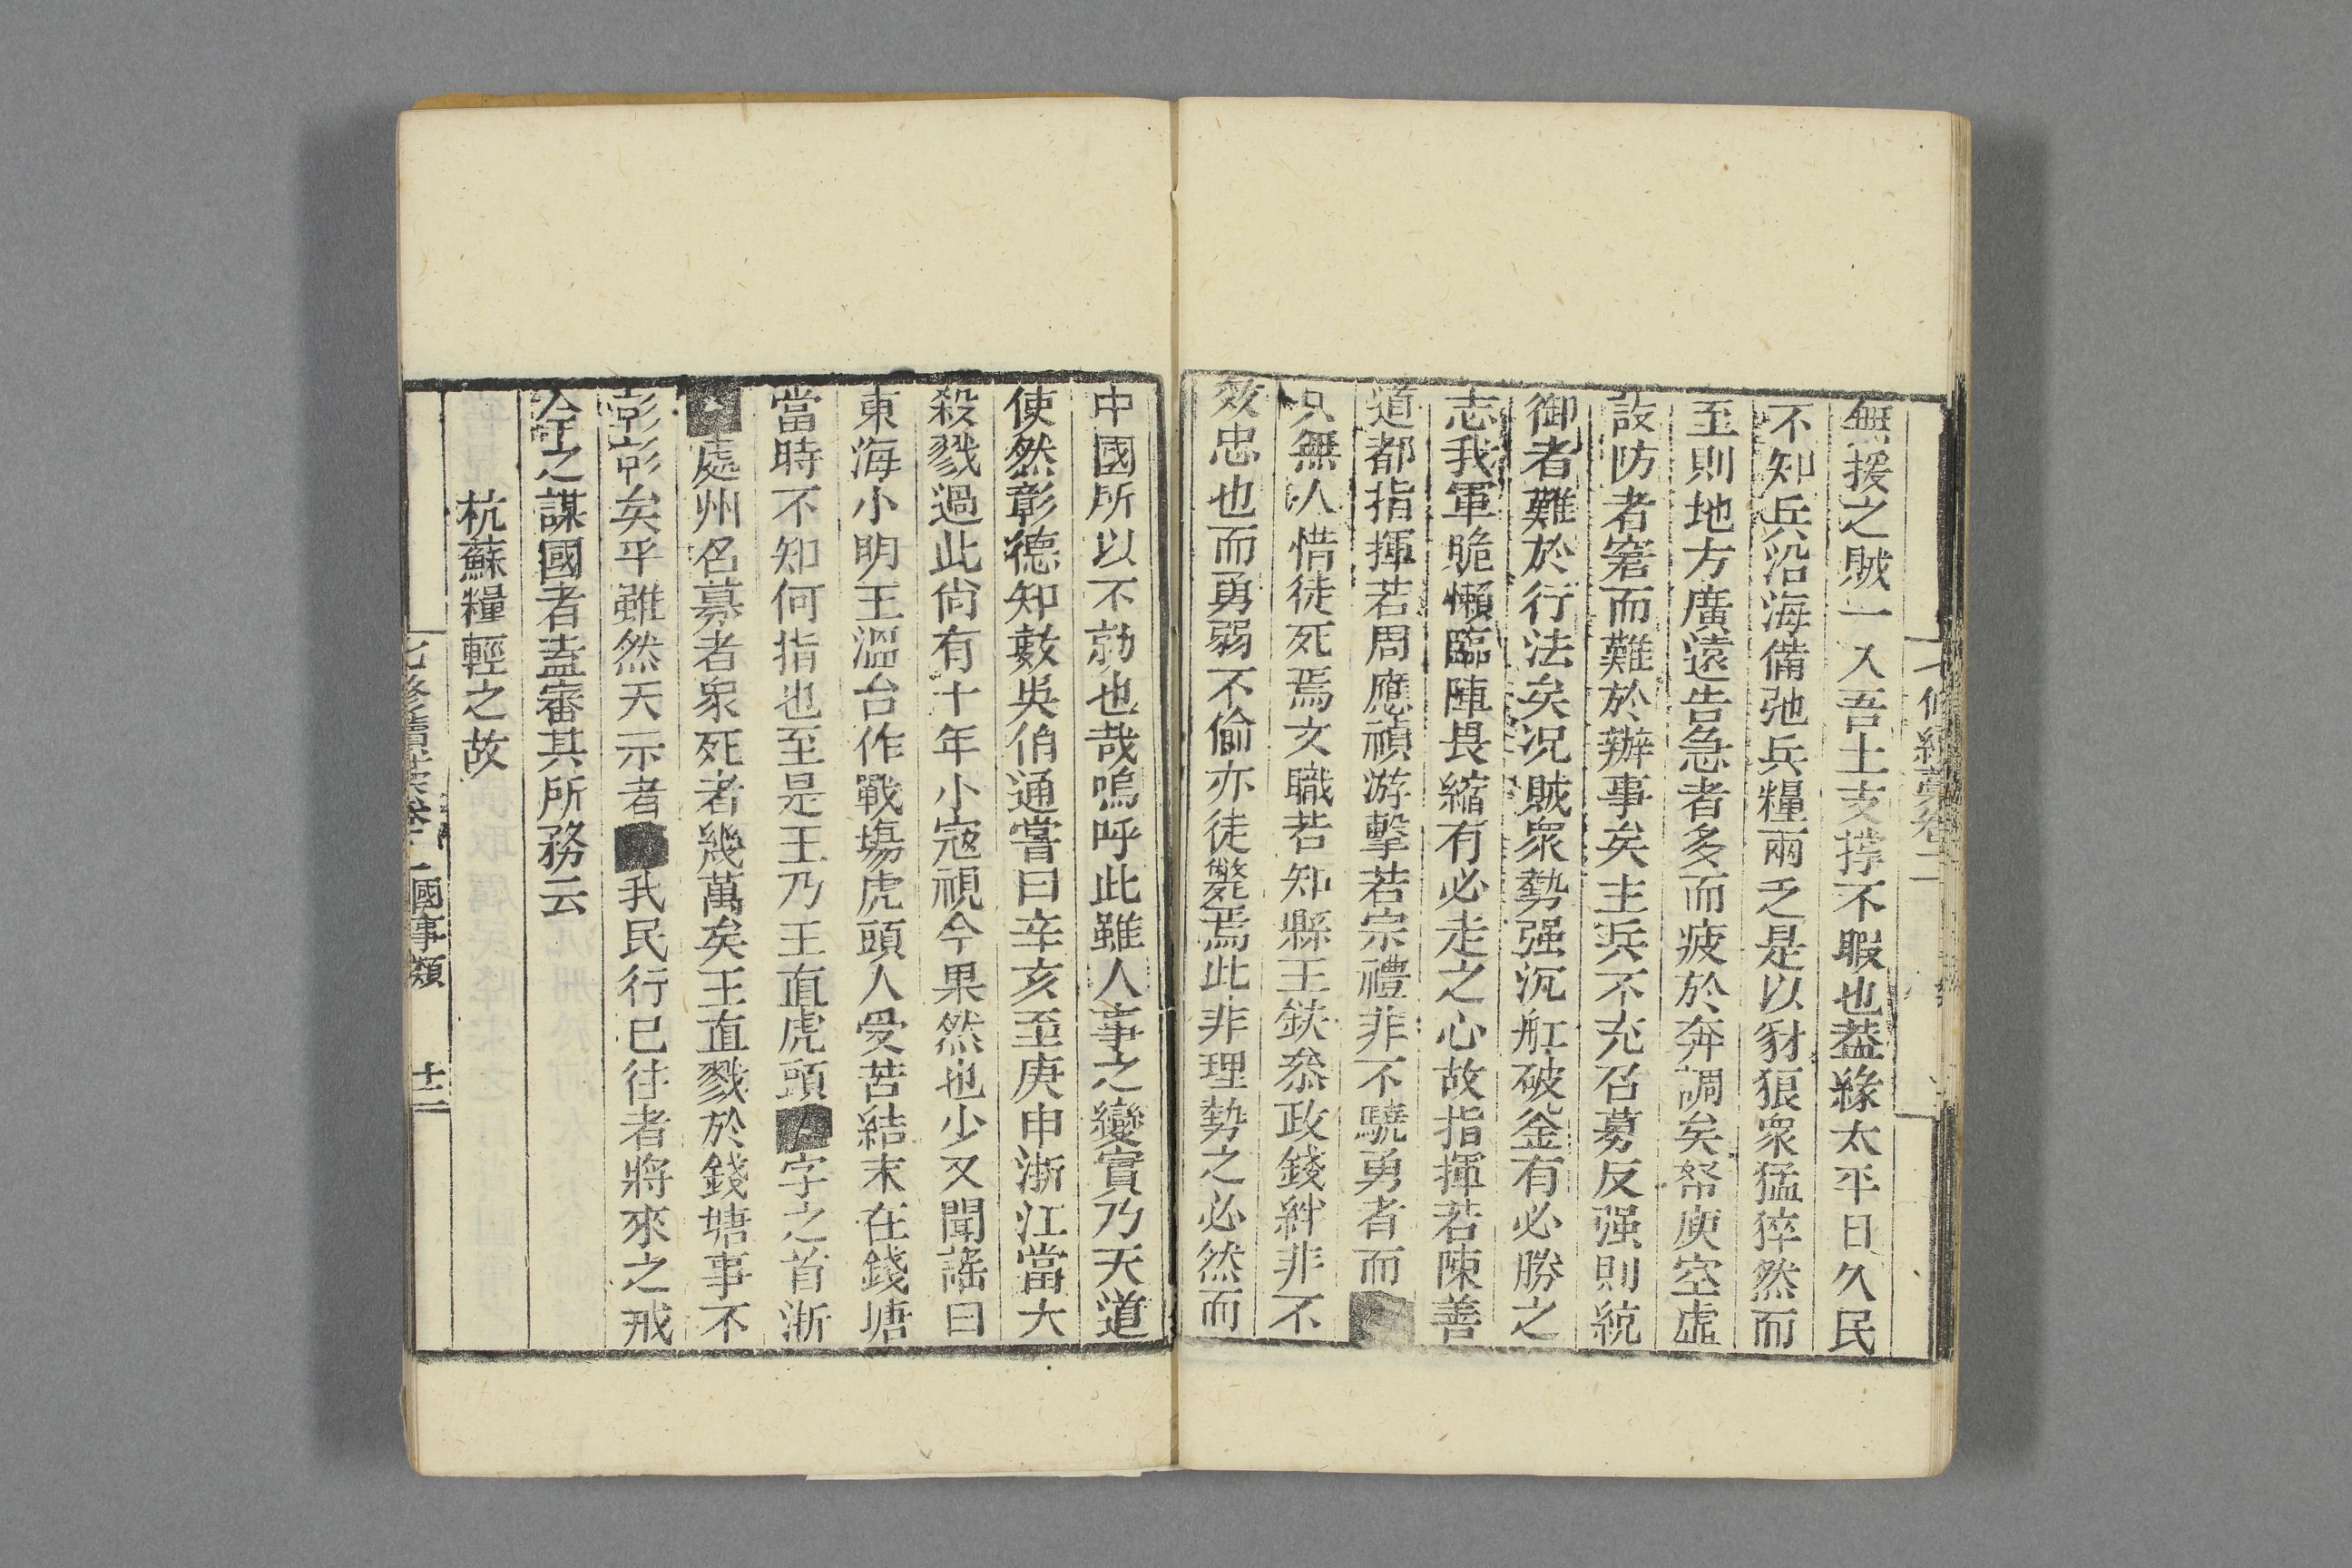 無援之賊一入吾土支撐不暇也葢緣太平日久民
不知兵沿海備弛兵糧兩乏是以豺狼衆猛猝然而
至則地方廣遠告急者多而疲於奔調矣帑庾空虛
設防者窘而難於辦事矣主兵不充召募反强則統
御者難於行法矣况賊衆勢强沉舡破釜有必勝之
志我軍脆懶臨陣畏縮有必走之心故指揮若陳善
道都指揮若周應禎游擊若宗禮非不驍勇者而
只無人惜徒死焉文職若知縣王鈇叅政錢絆非不
效忠也而勇弱不偷亦徒斃焉此非理勢之必然而
中國所以不効也哉嗚呼此雖人事之變實乃天道
使然彰德知數吳伯通嘗曰辛亥至庚申浙江當大
殺戮過此尙有十年小寇視今果然也少又聞謠曰
東海小明王溫台作戰塲虎頭人受苦結末在錢塘
當時不知何指也至是王乃王直虎頭字之首浙
處州名募者衆死者幾萬矣王直戮於錢塘事不
彰彰矣乎雖然天示者我民行已往者將來之戒
今之謀國者盍審其所務云
杭蘇糧輕之故
七修續藁卷二 國事類 十二